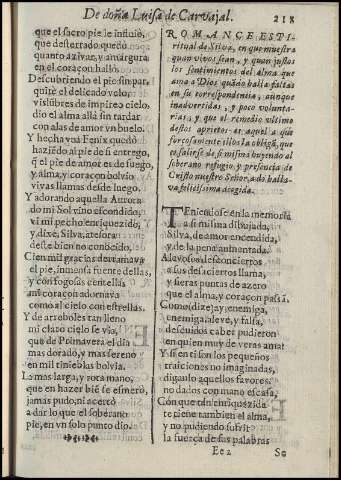 De doña Luisa de Carvajal. 218
que el sacro pie le influiò,
que desterrado quedò
quanto azivar, y amargura
en el coraçon hallò.
Descubriendo el pie sin par,
quitè el delicado velo,
vislũbres de impireo cielo,
dio el alma allà sin tardar
con alas de amor vn buelo.
Y hecha vna Fenix quedò
haziẽdo al pie de si entrego,
q̃ el pie de amor es de fuego,
y alma, y coraçon bolviò
vivas llamas desde luego.
Y adorando aquella Aurora
do mi Sol vino escondido,
vi mi pecho enriquezido,
y dixe, Silva, atesora
deste bien no conocido,
Cien mil gracias derramava
el pie, inmensa fuente dellas,
y con fogosas centellas
mi coraçon adornava
como al cielo con estrellas.
Y de arreboles tan lleno
mi claro cielo se vìa,
que de Primavera el dia
mas dorado, y mas sereno
en mil tinieblas bolvia.
La mas larga, y rota mano,
que en hazer biẽ se esmerò,
jamas pudo, ni acertò
a dar lo que el soberano
pie, en vn solo punto dio.
ROMANCE ESPI-
ritual de Silva, en que muestra
quan vivos sean, y quan justos
los sentimientos del alma que
ama a Dios quãdo halla faltas
en su correspondencia, aunque
inadvertidas, y poco volunta-
rias, y que el remedio vltimo
destos aprietos es aquel a que
forçosamente illos la obligã, que
es salirse de si misma huyendo al
soberano refugio y presencia de
Cristo nuestro Señor, a do halla-
va felicissima acogida.
TEniendose en la memoria
a si misma dibujada,
Silva, de amor encendida,
y de la pena aumentada.
Alevosos desconciertos
a sus desaciertos llama,
y fieras puntas de azero
que el alma, y coraçon passã.
Como (dize) ay, enemiga,
enemiga aleve, y falsa,
descuidos caber pudieron
en quien muy de veras ama?
Y si en ti son los pequeños
traiciones no imaginadas,
diganlo aquellos favores,
no dados con mano escasa,
Con que tan enriquezida
te tiene tambien el alma,
y no pudiendo sufrir
la fuerça de sus palabras
Ee 2 Se